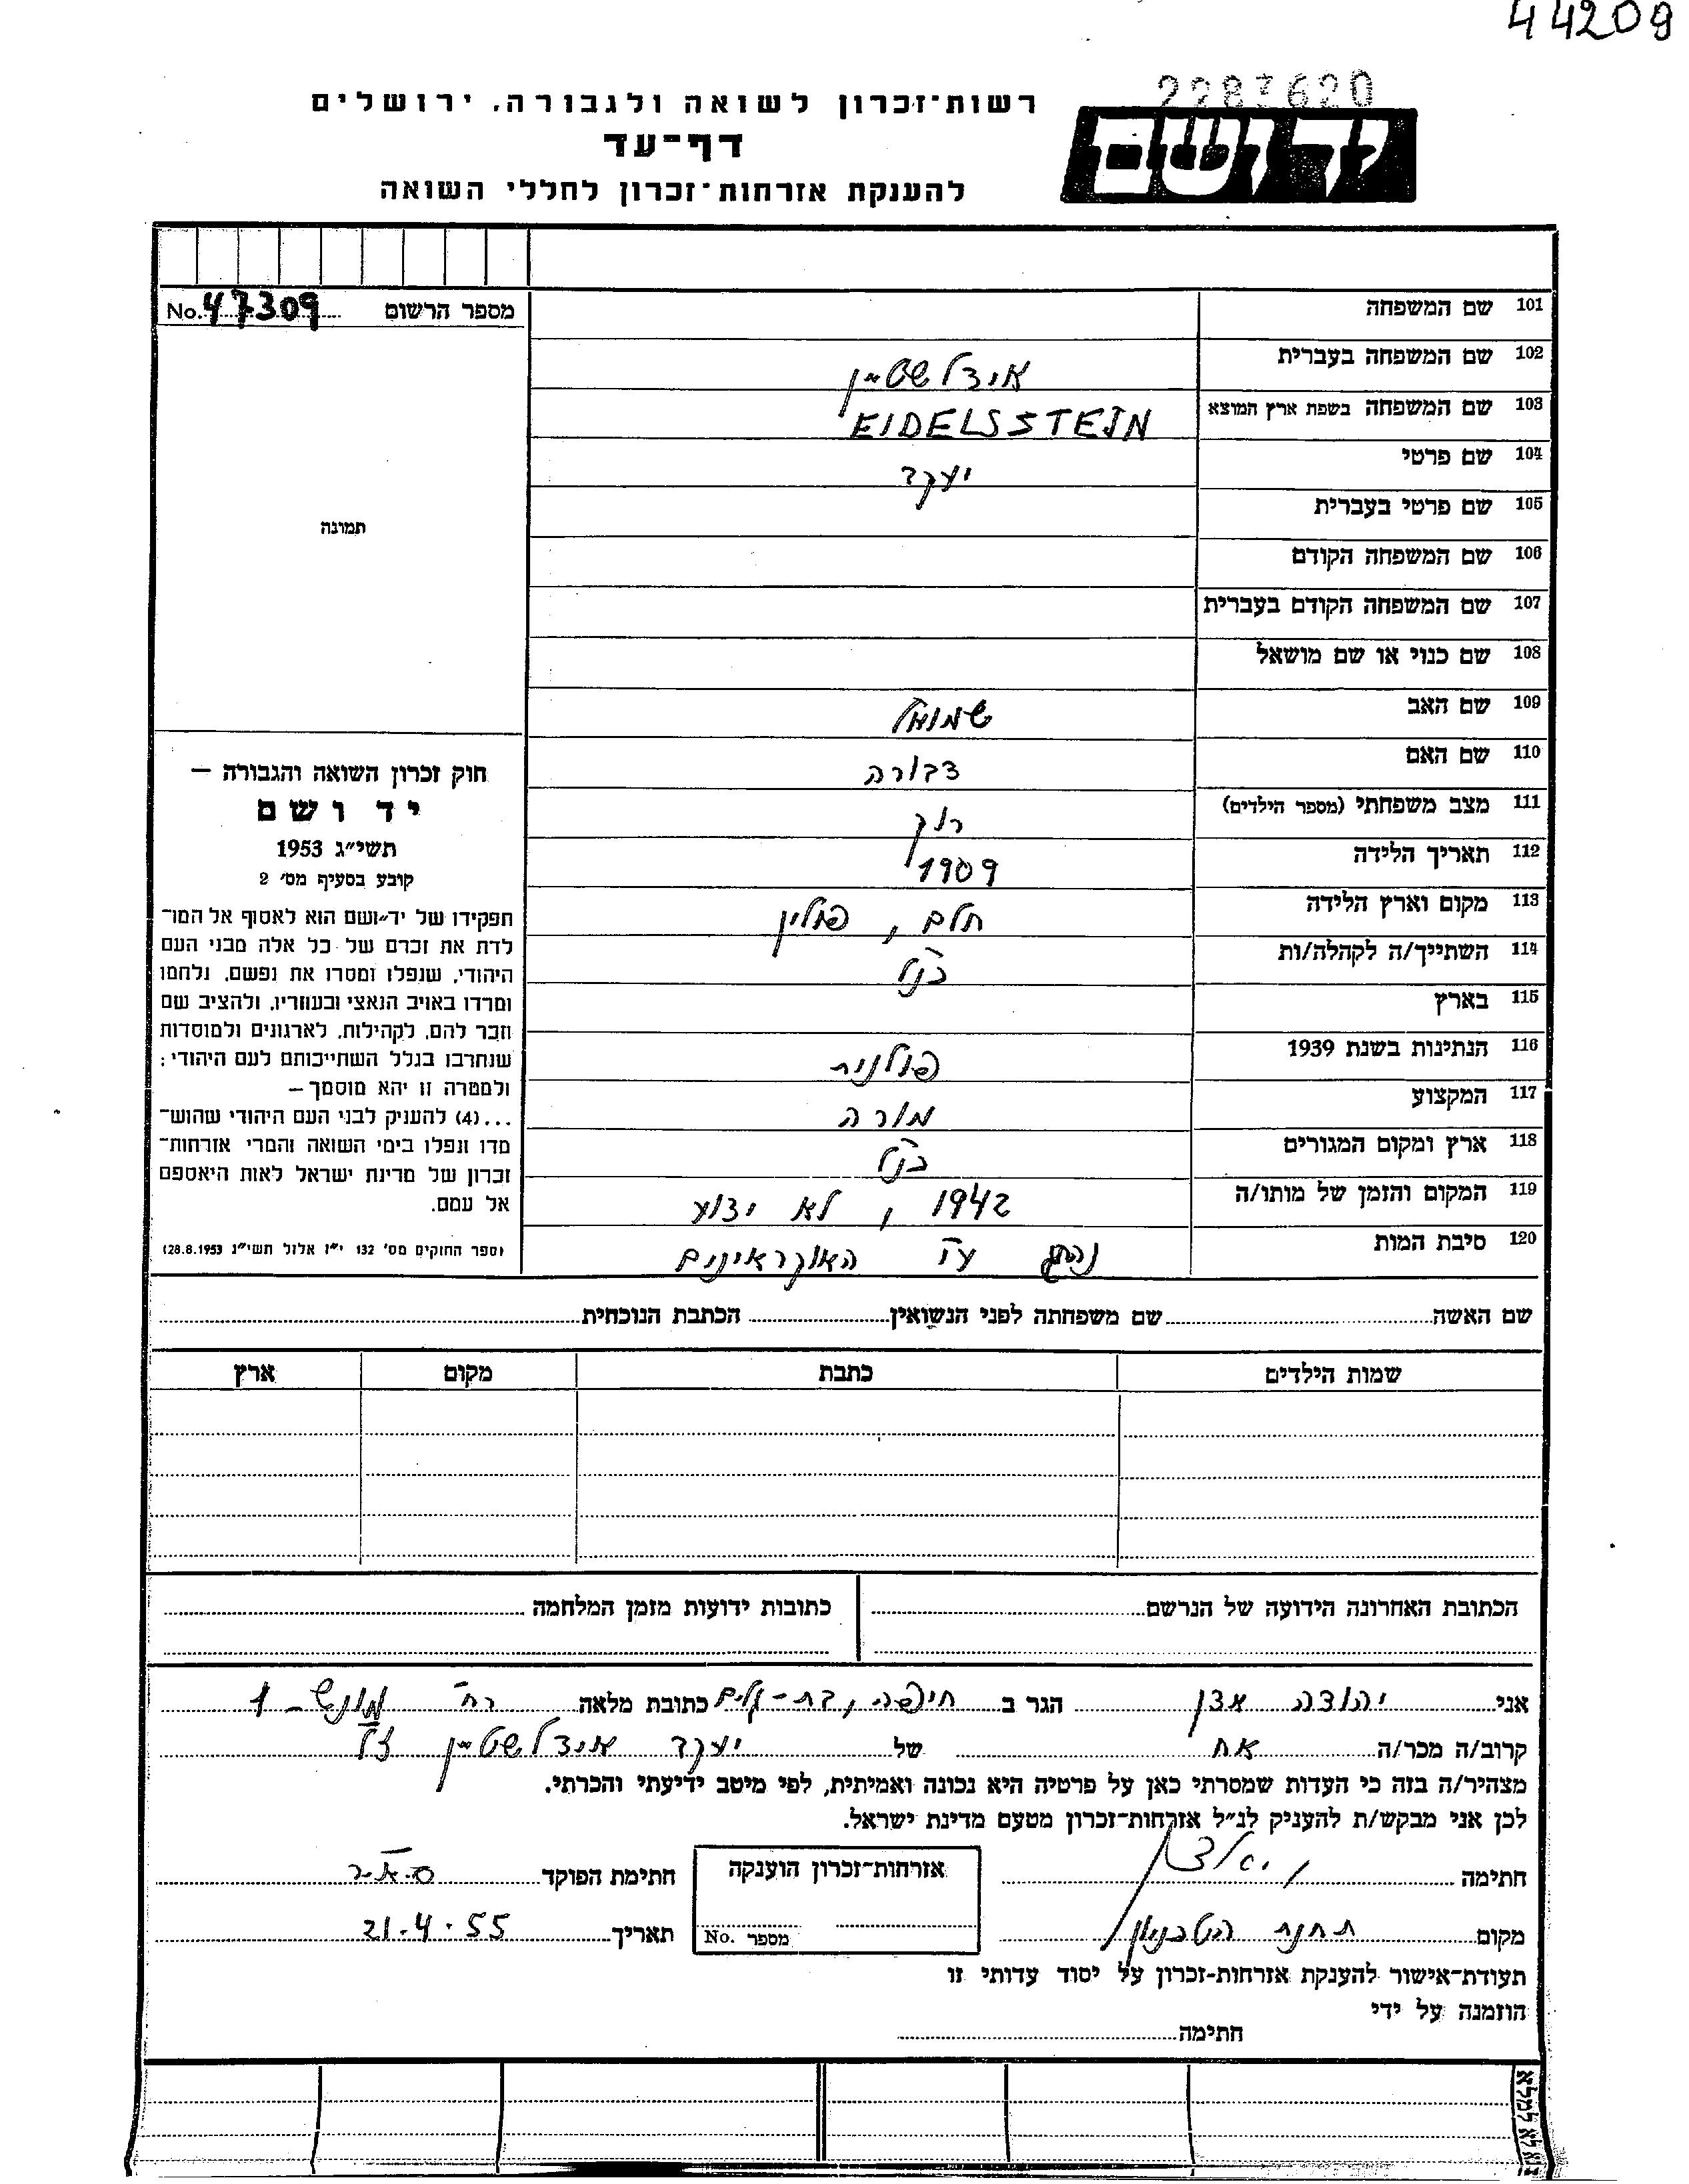 44209
2283620
יד ושם
רשות־זכרון לשואה ולגבורה, ירושלים
דף־עד
להענקת אזרחות־זכרון לחללי השואה
מספר הרשום No. 47309
תמונה
חוק זכרון השואה והגבורה —
יד ושם
תשי״ג 1953
קובע בסעיף מס׳ 2
תפקידו של יד־ושם הוא לאסוף אל המו־
לדת את זכרם של כל אלה מבני העם
היהודי, שנפלו ומסרו את נפשם, נלחמו
ומרדו באויב הנאצי ובעוזריו, ולהציב שם
וזכר להם, לקהילות, לארגונים ולמוסדות
שנחרבו בגלל השתייכותם לעם היהודי;
ולמטרה זו יהא מוסמך —
...(4) להעניק לבני העם היהודי שהוש־
מדו ונפלו בימי השואה והמרי אזרחות־
זכרון של מדינת ישראל לאות היאספם
אל עמם.
(ספר החוקים מס׳ 132 י״ז אלול תשי״ג 28.8.1953)
101 שם המשפחה
102 שם המשפחה בעברית אידלשטיין
103 שם המשפחה בשפת ארץ המוצא EIDELSSTEIN
104 שם פרטי יעקב
105 שם פרטי בעברית
106 שם המשפחה הקודם
107 שם המשפחה הקודם בעברית
108 שם כנוי או שם מושאל
109 שם האב שמואל
110 שם האם דבורה
111 מצב משפחתי (מספר הילדים) רוק
112 תאריך הלידה 1909
113 מקום וארץ הלידה חלם, פולין
114 השתייך/ה לקהלה/ות כנ״ל
115 בארץ
116 הנתינות בשנת 1939 פולנית
117 המקצוע מורה
118 ארץ ומקום המגורים כנ״ל
119 המקום והזמן של מותו/ה 1942, לא ידוע
120 סיבת המות נהרג ע״י האוקראינים
שם האשה שם משפחתה לפני הנשואין הכתבת הנוכחית
שמות הילדים כתבת מקום ארץ
הכתובת האחרונה הידועה של הנרשם כתובות ידועות מזמן המלחמה
אני יהודה אדן הגר ב חיפה, בת-גלים כתובת מלאה רח׳ - 1
קרוב/ה מכר/ה אח של יעקב אידלשטיין ז״ל
מצהיר/ה בזה כי העדות שמסרתי כאן על פרטיה היא נכונה ואמיתית, לפי מיטב ידיעתי והכרתי.
לכן אני מבקש/ת להעניק לנ״ל אזרחות־זכרון מטעם מדינת ישראל.
חתימה אזרחות־זכרון הוענקה חתימת הפוקד
מקום תחנת הטכניון מספר No. תאריך 21-4-55
תעודת־אישור להענקת אזרחות-זכרון על יסוד עדותי זו
הוזמנה על ידי
חתימה
נא לא למלא